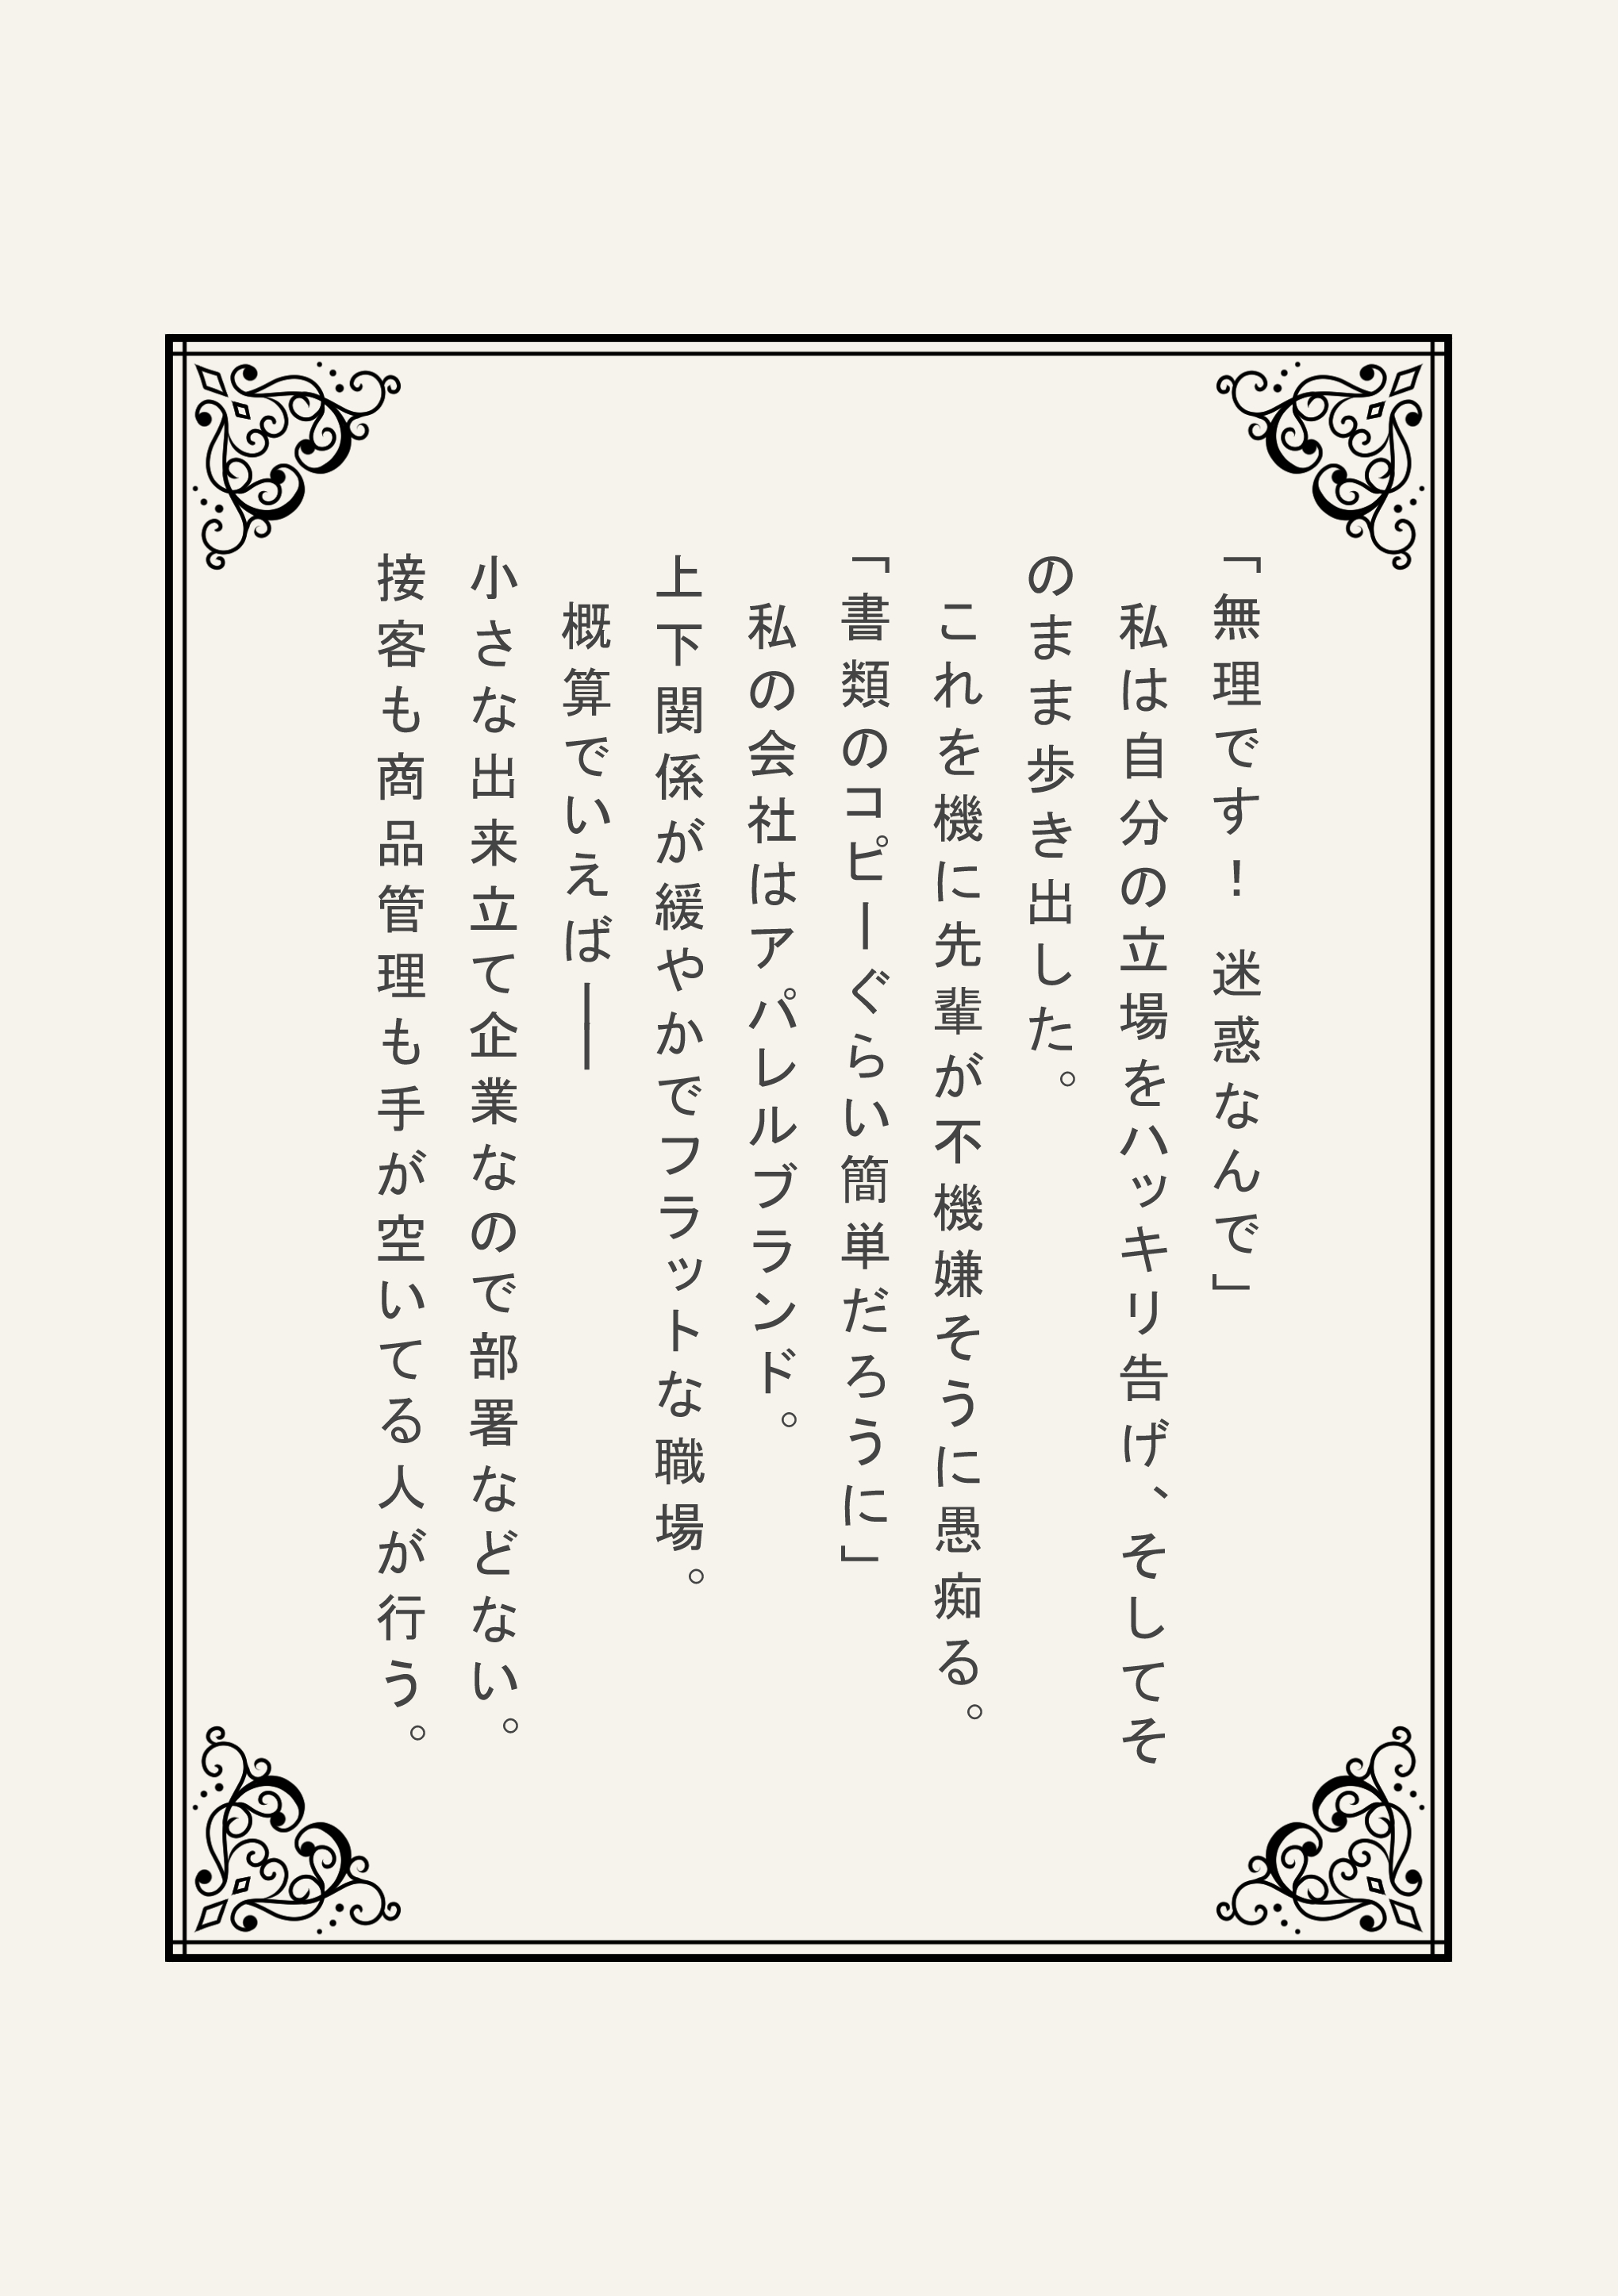 「無理です！　迷惑なんで」
　私は自分の立場をハッキリ告げ、そしてそ
のまま歩き出した。
　これを機に先輩が不機嫌そうに愚痴る。
「書類のコピーぐらい簡単だろうに」
　私の会社はアパレルブランド。
上下関係が緩やかでフラットな職場。
　概算でいえば――
小さな出来立て企業なので部署などない。
接客も商品管理も手が空いてる人が行う。